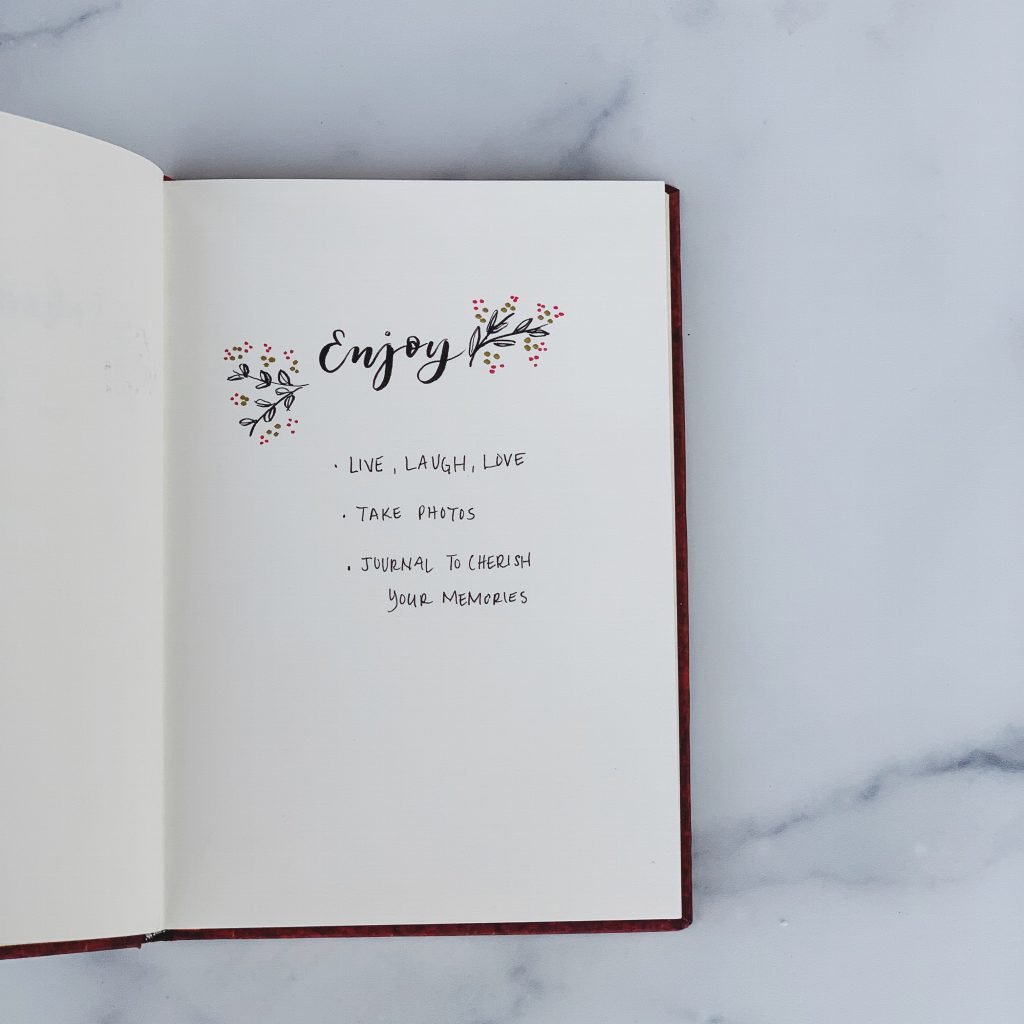 Enjoy
· LIVE, LAUGH, LOVE
· TAKE PHOTOS
· JOURNAL TO CHERISH
YOUR MEMORIES